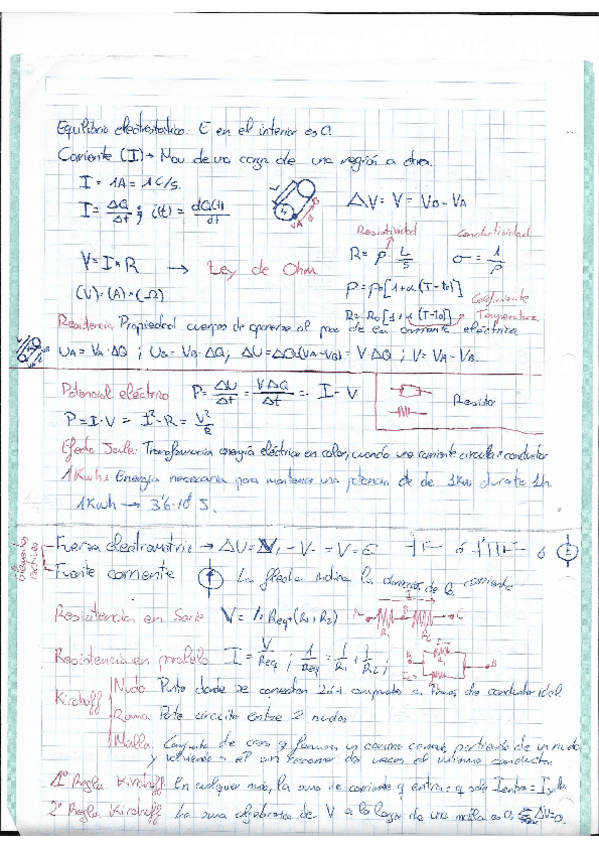 Equilibrio electrostatico: E en el interior es 0.
Corriente (I) → Mov de una carga de una región a otra.
I = 1A = 1C/s.
I = ΔQ/Δt ; i(t) = dQ(t)/dt
ΔV = V = VB - VA
A B
Resistividad
Conductividad
R = ρ · L/S
σ = 1/ρ
V = I · R → Ley de Ohm
ρ = ρ0[1+α(T-T0)]
(V) = (A) · (Ω)
R = R0[1+α(T-T0)]
Coeficiente Temperatura
Resistencia Propiedad cuerpos de oponerse al paso de la corriente eléctrica
UA = VA·ΔQ ; UB = VB·ΔQ ; ΔU = ΔQ(VA-VB) = V·ΔQ ; V = VA - VB.
Potencial eléctrico P = ΔU/Δt = VΔQ/Δt = I · V
Resistor
P = I·V = I²·R = V²/R
Efecto Joule: Transformación energía eléctrica en calor, cuando una corriente circula conductor
1Kwh: Energía necesaria para mantener una potencia de de 1Kw durate 1h.
1Kwh → 3'6·10⁶ J.
Elementos activos
Fuerza electromotriz → ΔV = V+ - V- = V = ε
ó ó
Fuente corriente
La flecha indica la de la corriente
Resistencia en Serie V = I·Req·(R1+R2)
A R1 B R2 C
Resistencia en paralelo I = V/Req ; 1/Req = 1/R1 + 1/R2 ;
Kirchoff
Nudo Punto donde se conectan 2 ó + a traves de conductor ideal
Rama Parte circuito entre 2 nudos
Malla. Conjunto de q forman un camino cerrado, partiendo de un nudo
y volviendo a él sin recorrer dos veces el mismo conductor.
1º Regla Kirchoff En cualquier nudo, la suma de corriente q entra = q sale
2º Regla Kirchoff La suma algebraica de V a lo largo de una malla es 0, ΣΔV=0.